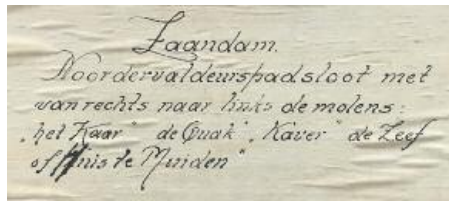 Zaandam.
Noordervaldeurspadsloot met
van rechts naar links de molens:
„het Kaar" de Quak", Kaver" de Zeef
of Huis te Muiden"